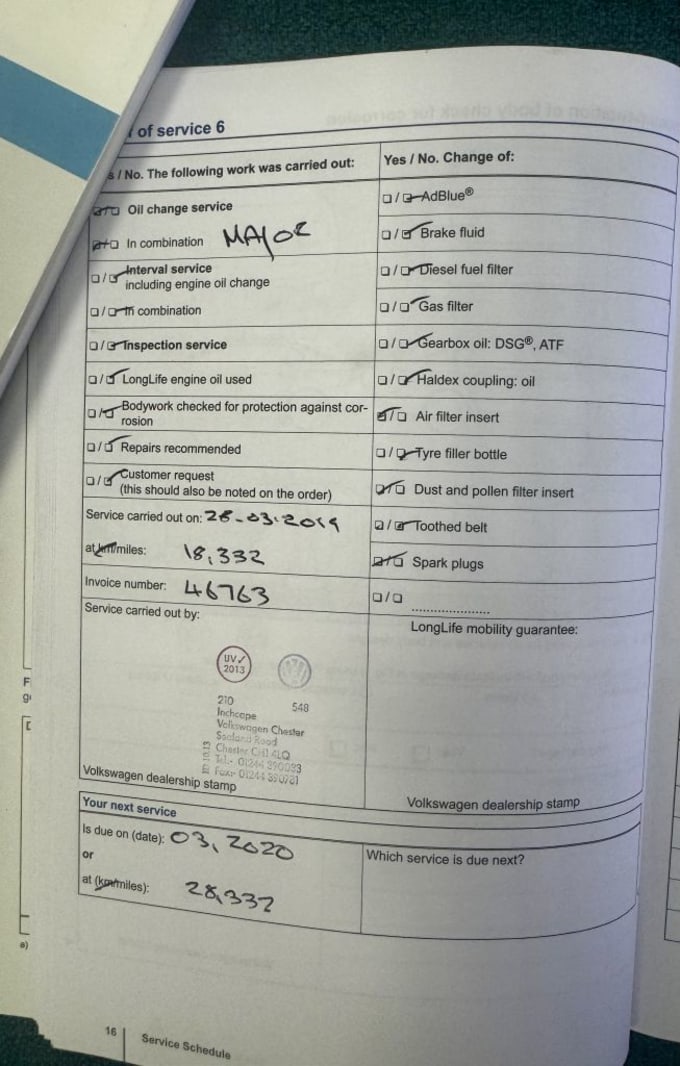 of service 6
/ No. The following work was carried out:
Yes / No. Change of:
Oil change service
In combination MAJOR
Interval service
including engine oil change
In combination
Inspection service
LongLife engine oil used
Bodywork checked for protection against cor-
rosion
Repairs recommended
Customer request
(this should also be noted on the order)
Service carried out on: 28-03-2019
at km/miles: 18,332
Invoice number: 46763
Service carried out by:
UV✓
2013
210 548
Inchcape
Volkswagen Chester
Sealand Road
Chester CH1 4LQ
Volkswagen dealership stamp
AdBlue®
Brake fluid
Diesel fuel filter
Gas filter
Gearbox oil: DSG®, ATF
Haldex coupling: oil
Air filter insert
Tyre filler bottle
Dust and pollen filter insert
Toothed belt
Spark plugs
LongLife mobility guarantee:
Volkswagen dealership stamp
Your next service
Is due on (date): 03, 2020
or
at (km/miles): 28,332
Which service is due next?
16 Service Schedule